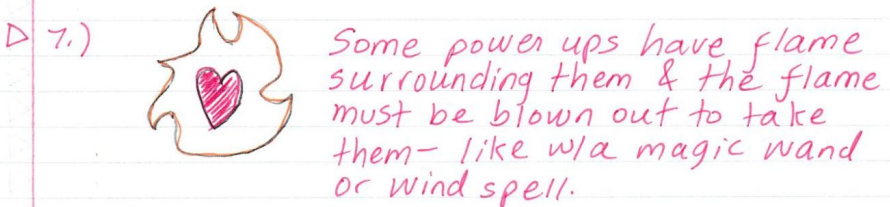 7.)
Some power ups have flame
surrounding them & the flame
must be blown out to take
them- like w/a magic wand
or wind spell.